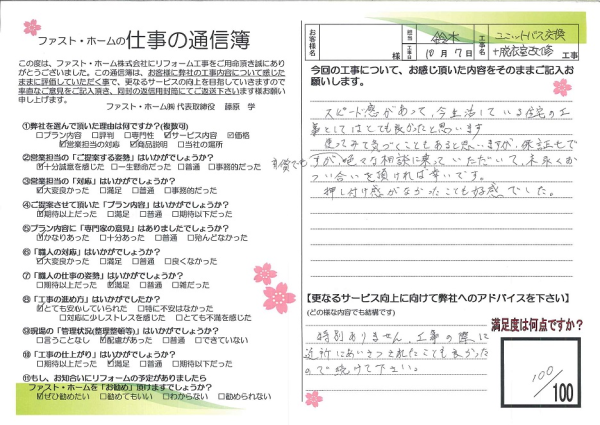 ファスト・ホームの仕事の通信簿
この度は、ファスト・ホーム株式会社にリフォーム工事をご用命頂き誠にあり
がとうございました。この通信簿は、お客様に弊社の工事内容について感じた
ままに評価していただく事で、更なるサービスの向上を目指していきますので
率直なご意見をご記入頂き、同封の返信用封筒にてご返送下さいます様お願い
申し上げます。
ファースト・ホーム㈱ 代表取締役 藤原 学
①弊社を選んで頂いた理由は何ですか?(複数可)
□プラン内容 □評判 □専門性 ☑サービス内容 ☑価格
☑営業担当の対応 ☑商品説明 □当社の場所
②営業担当の「ご提案する姿勢」はいかがでしょうか?
☑十分誠意を感じた □一生懸命だった □普通 □事務的だった
③営業担当の「対応」はいかがでしょうか?
☑大変良かった □満足 □普通 □事務的だった
④ご提案させて頂いた「プラン内容」はいかがでしょうか?
☑期待以上だった □満足 □普通 □期待以下だった
⑤プラン内容に「専門家の意見」はありましたでしょうか?
☑かなりあった □十分あった □普通 □殆んどなかった
⑥「職人の対応」はいかがでしょうか?
☑大変良かった □満足 □普通 □良くなかった
⑦「職人の仕事の姿勢」はいかがでしょうか?
☑期待以上だった □満足 □普通 □雑だった
⑧「工事の進め方」はいかがでしたか?
☑とても安心していられた □特に不安はなかった
□対応に少しストレスを感じた □とても不満を感じた
⑨現場の「管理状況(整理整頓等)」はいかがでしょうか?
□言うことなし ☑配慮があった □普通 □できていない
⑩「工事の仕上がり」はいかがでしょうか?
□期待以上だった ☑満足 □普通 □期待以下だった
⑪もし、お知合いにリフォームの予定がありましたら
ファースト・ホームを「お勧め」頂けますでしょうか?
☑ぜひ勧めたい □勧めてもいい □わからない □勧められない
お客様名 様
担当 鈴木
工事日 10月7日
工事名 ユニットバス交換
+脱衣室改修 工事
今回の工事について、お感じ頂いた内容をそのままご記入お
願いします。
スピード感があって、今生活している住宅の工
事としてはとても良かったと思います
使ってみて気づくこともあると思いますが、保証もで
すが、色々な相談に乗っていただいて、末永くお
つい合いを頂ければ幸いです。
押し付け感がなかったことも好感でした。
【更なるサービス向上に向けて弊社へのアドバイスを下さい】
(どの様な内容でも結構です)
特別ありません、工事の際に
近所にあいさつされたことも良かった
ので続けて下さい。
満足度は何点ですか?
100/
100